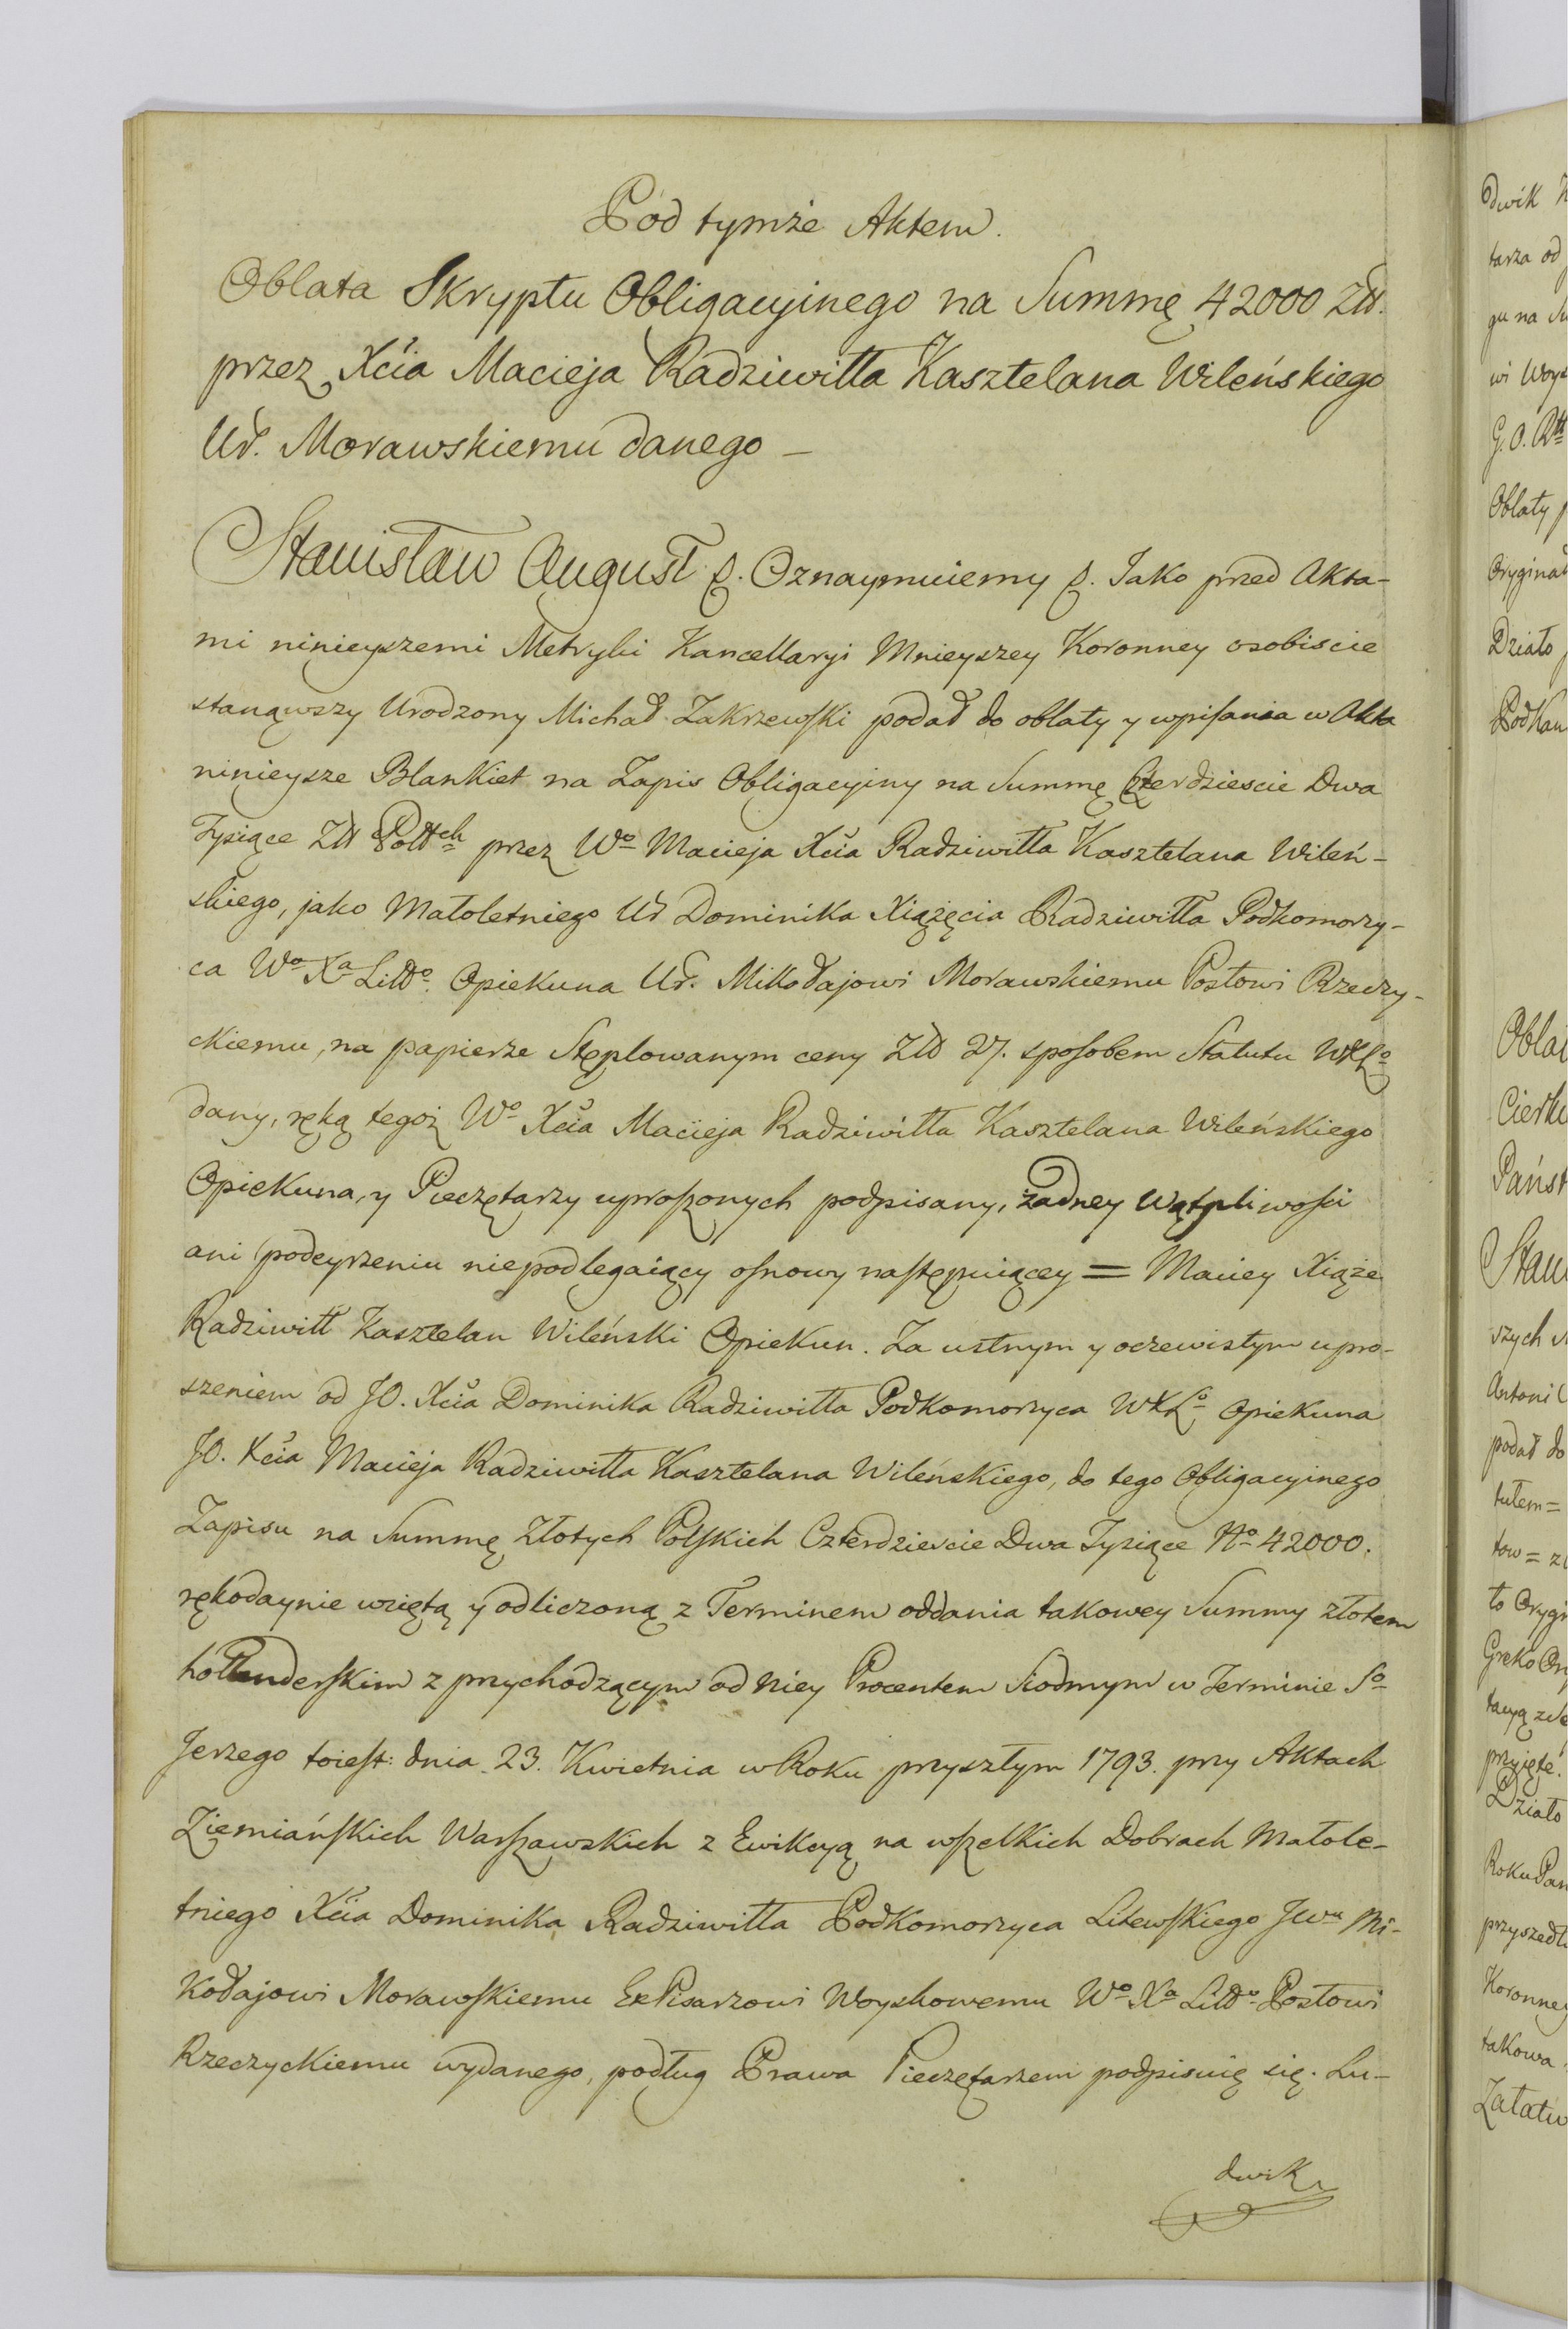 Pod tymże Aktem.
Oblata Skryptu Obligacyinego na Summę 42000 Złł.
przez Xcia Macieja Radziwiłła Kasztelana Wileńskiego
Ur. Morawskiemu danego —
Stanisław August &. Oznaymuiemy &. Jako przed Akta-
mi ninieyszemi Metryki Kancellaryi Mnieyszey Koronney osobiscie
stanąwszy Urodzony Michał Zakrzewski podał do oblaty y wpisania w Akta
ninieysze Blankiet na Zapis Obligacyiny na Summę Czterdziescie Dwa
Tysiące Złł Pollch przez Wo Macieja Xcia Radziwiłła Kasztelana Wileń-
skiego, jako Małoletniego Ur Dominika Xiążęcia Radziwiłła Podkomorzy-
ca Wo Xa Litto. Opiekuna Ur. Mikołajowi Morawskiemu Posłowi Rzeczy-
ckiemu, na papierze Stęplowanym ceny Złł 27. sposobem Statutu WXLo
dany, ręką tegoż Wo Xcia Macieja Radziwiłła Kasztelana Wileńskiego
Opiekuna, y Pieczętarzy uproszonych podpisany, żadney wątpliwości
ani podeyrzeniu niepodlegaiący osnowy następuiącey = Maciey Xiąże
Radziwiłł Kasztelan Wileński Opiekun. Za ustnym y oczewistym upro-
szeniem od JO. Xcia Dominika Radziwiłła Podkomorzyca WXLo Opiekuna
JO. Xcia Macieja Radziwiłła Kasztelana Wileńskiego, do tego Obligacyinego
Zapisu na Summę Złotych Polskich Czterdziescie Dwa Tysiące No 42000.
rękodaynie wziętą y odliczoną z Terminem oddania takowey Summy złotem
hollenderskim z przychodzącym od niey Procentem Siodmym w Terminie So
Jerzego toiest: dnia 23. Kwietnia w Roku przyszłym 1793. przy Aktach
Ziemiańskich Warszawskich z Ewikcyą na wszelkich Dobrach Małole-
tniego Xcia Dominika Radziwiłła Podkomorzyca Litewskiego Jwu Mi-
kołajowi Morawskiemu ExPisarzowi Woyskowemu Wo Xa Litto Posłowi
Rzeczyckiemu wydanego, podług Prawa Pieczętarzem podpisuię się. Lu-
dwik